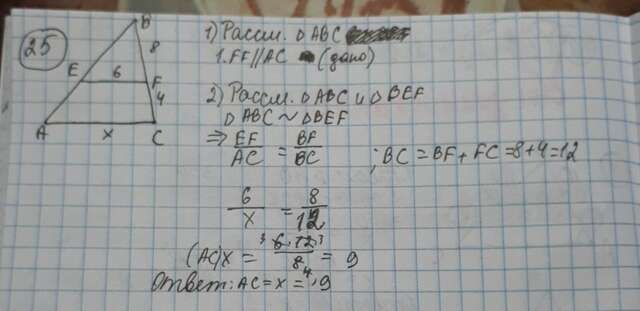 25
B
8
E 6 F
4
A x C
1) Рассм. △ABC
1. FF//AC (дано)
2) Рассм. △ABC и △BEF
△ABC ~ △BEF
⇒ EF/AC = BF/BC ; BC = BF + FC = 8+4 = 12
6/x = 8/12
(AC)x = 6·12/8 = 9
Ответ: AC = x = 9